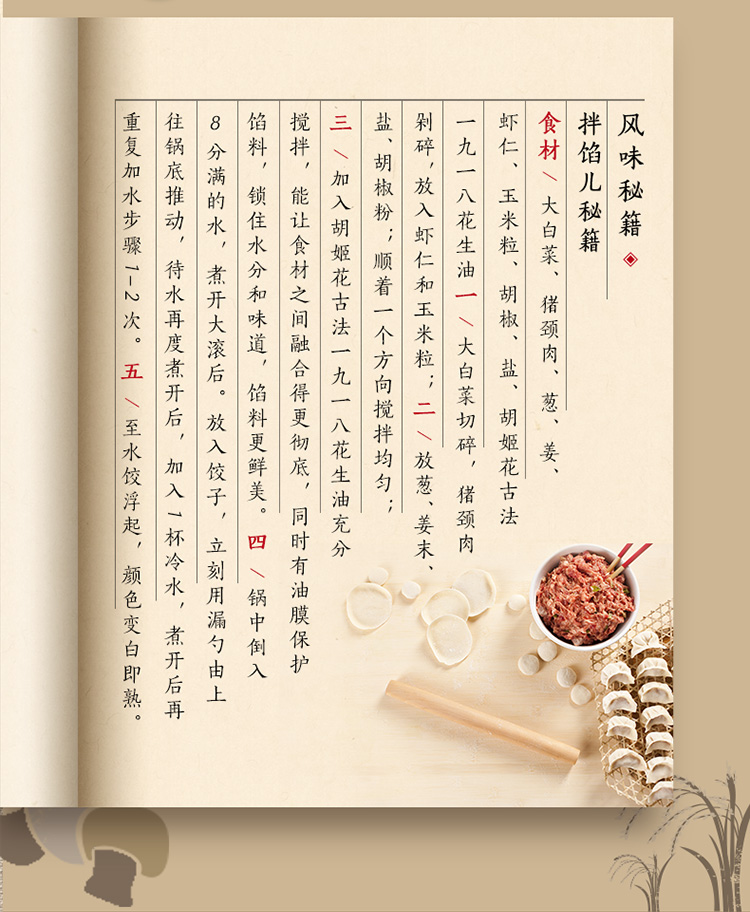 风味秘籍
拌馅儿秘籍
食材/大白菜、猪颈肉、葱、姜、
虾仁、玉米粒、胡椒、盐、胡姬花古法
一九一八花生油 一/大白菜切碎，猪颈肉
剁碎，放入虾仁和玉米粒；二/放葱、姜末、
盐、胡椒粉；顺着一个方向搅拌均匀；
三/加入胡姬花古法一九一八花生油充分
搅拌，能让食材之间融合得更彻底，同时有油膜保护
馅料，锁住水分和味道，馅料更鲜美。四/锅中倒入
8分满的水，煮开大滚后。放入饺子，立刻用漏勺由上
往锅底推动，待水再度煮开后，加入1杯冷水，煮开后再
重复加水步骤1-2次。五/至水饺浮起，颜色变白即熟。